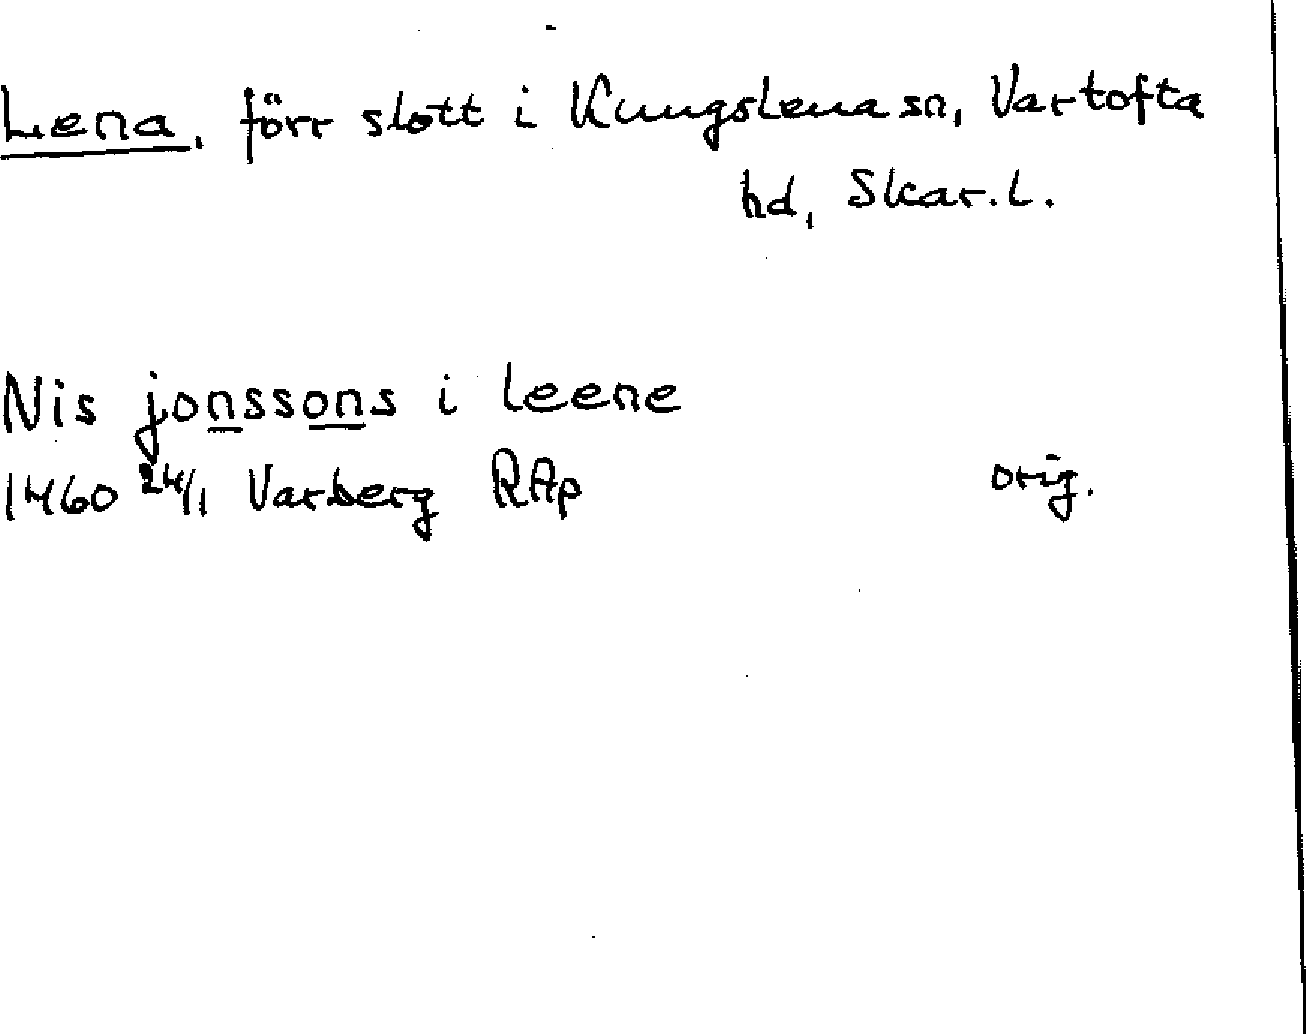 Lena, förr slott i Kungslena sn, Vartofta
hd, Skar.l.
Nis jonssons i leene
1460 24/1 Varberg RAp
orig.